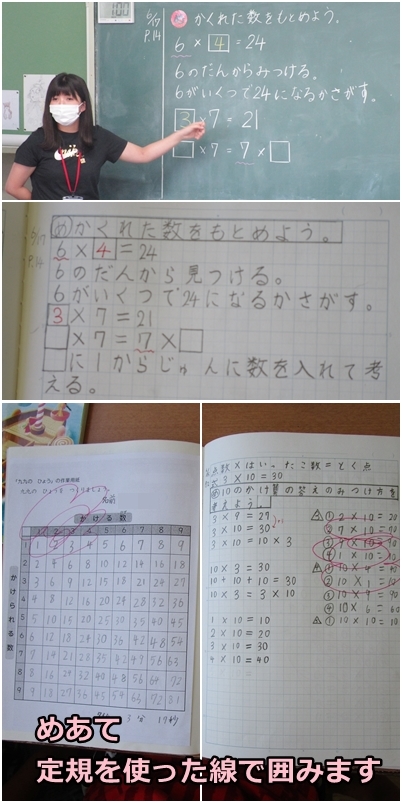 6/17
P.14
め かくれた数をもとめよう。
6 × 4 = 24
6のだんからみつける。
6がいくつで24になるかさがす。
3 × 7 = 21
□ × 7 = 7 × □
6/17
P.14
め かくれた数をもとめよう。
6 × 4 = 24
6のだんから見つける。
6がいくつで24になるかさがす。
3 × 7 = 21
□ × 7 = 7 × □
□に1からじゅんに数を入れて考
える。
「九九の ひょう」の作業用紙
九九の ひょうを つくりましょう。
名前
かける数
1 2 3 4 5 6 7 8 9
かけられる数
1 1 2 3 4 5 6 7 8 9
2 2 4 6 8 10 12 14 16 18
3 3 6 9 12 15 18 21 24 27
4 4 8 12 16 20 24 28 32 36
5 5 10 15 20 25 30 35 40 45
6 6 12 18 24 30 36 42 48 54
7 7 14 21 28 35 42 49 56 63
8 8 16 24 32 40 48 56 64 72
9 9 18 27 36 45 54 63 72 81
3分 17秒
点数×はいったこ数=とく点
3 × 10 = 30
め 10のかけ算の答えのみつけ方を
考えよう。
3 × 9 = 27
3 × 10 = 30
3 × 10 = 10 × 3
10 × 3 = 30
10 + 10 + 10 = 30
10 × 3 = 3 × 10
1 × 10 = 10
2 × 10 = 20
3 × 10 = 30
4 × 10 = 40
① 2 × 10 = 20
④ 10 × 6 = 60
めあて
定規を使った線で囲みます